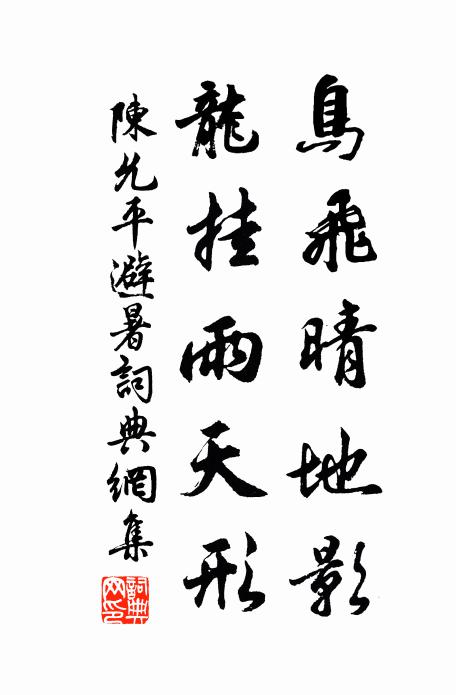 鳥飛晴地影
龍挂雨天形
陳允平避暑詞典網集
詞典網印